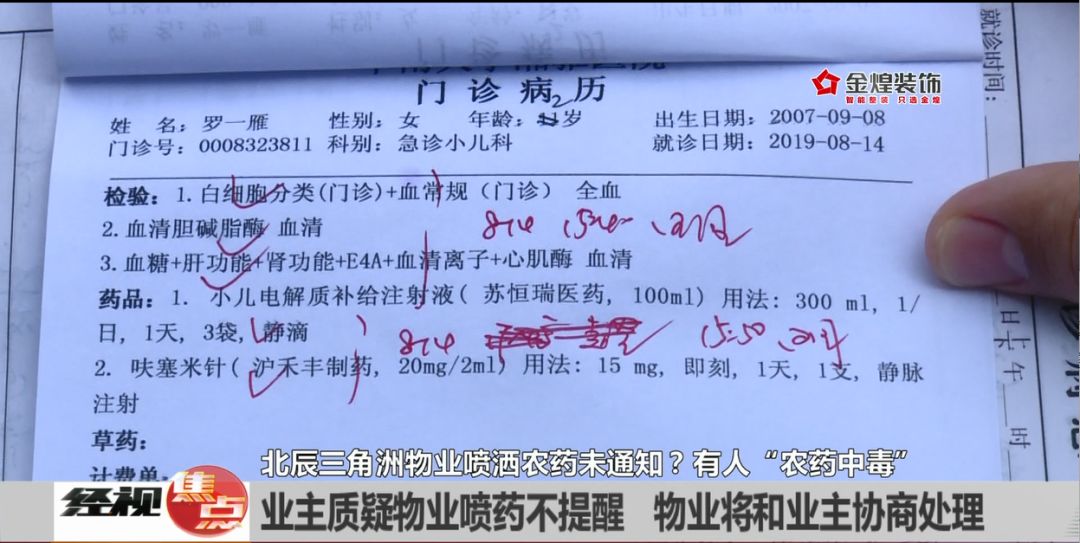 门诊病历
姓 名：罗一雁 性别：女 年龄：岁 出生日期：2007-09-08
门诊号：0008323811 科别：急诊小儿科 就诊日期：2019-08-14
就诊时间：
金煌装饰
智能整装 只选金煌
检验：1.白细胞分类(门诊)+血常规（门诊） 全血
2.血清胆碱脂酶 血清
8.14
3.血糖+肝功能+肾功能+E4A+血清离子+心肌酶 血清
药品：1. 小儿电解质补给注射液( 苏恒瑞医药, 100ml) 用法：300 ml, 1/
日, 1天, 3袋, 静滴
8.14 15:50
2. 呋塞米针( 沪禾丰制药, 20mg/2ml) 用法：15 mg, 即刻, 1天, 1支, 静脉
注射
草药：
日上午
时
北辰三角洲物业喷洒农药未通知？有人“农药中毒”
经视焦点
业主质疑物业喷药不提醒 物业将和业主协商处理